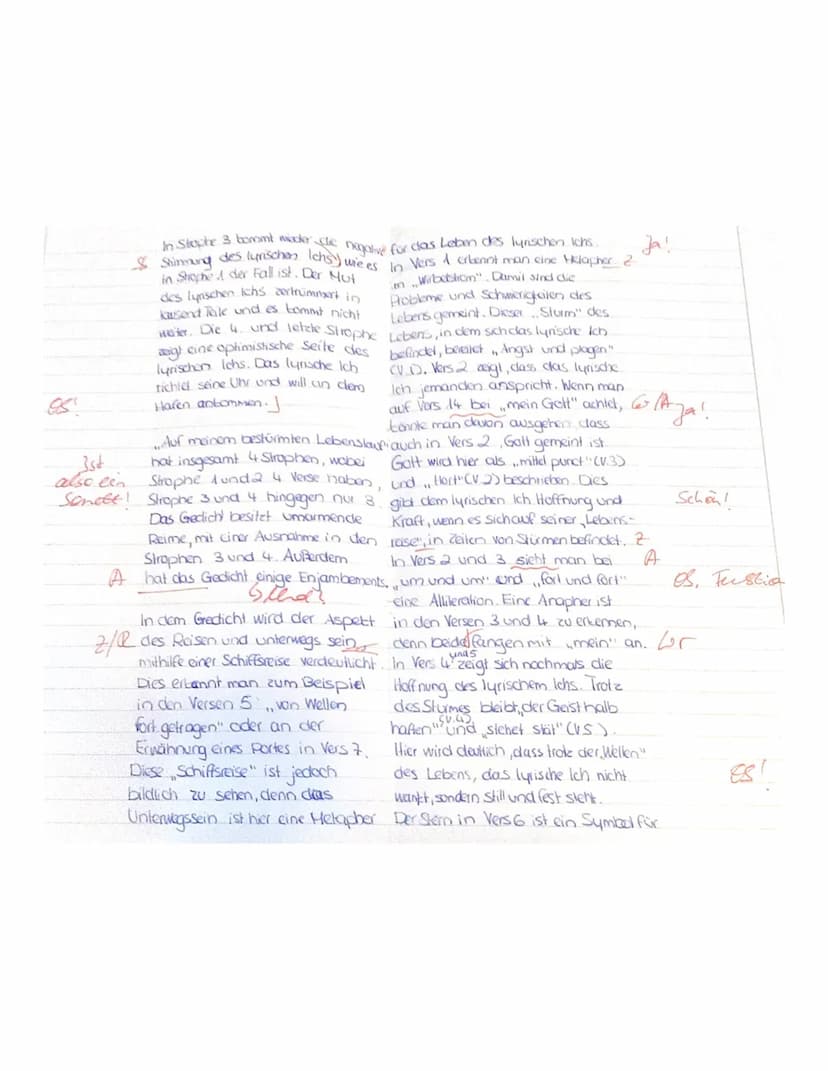 In Strophe 3 kommt wieder die negative
S Stimmung des lyrischen Ichs, wie es
in Strophe 1 der Fall ist. Der Mut
des lyrischen Ichs zertrümmert in
tausend Teile und es kommt nicht
weiter. Die 4. und letzte Strophe
zeigt eine optimistische Seite des
lyrischen Ichs. Das lyrische Ich
richtet seine Uhr und will an dem
ES! Hafen ankommen.
„Auf meinem bestürmten Lebenslauf"
Ist hat insgesamt 4 Strophen, wobei
also ein Strophe 1 und 2 4 Verse haben,
Sonett! Strophe 3 und 4 hingegen nur 3.
Das Gedicht besitzt umarmende
Reime, mit einer Ausnahme in den
Strophen 3 und 4. Außerdem
A hat das Gedicht einige Enjambements.
In dem Gedicht wird der Aspekt
Z/R des Reisen und unterwegs sein
mithilfe einer Schiffsreise verdeutlicht.
Dies erkannt man zum Beispiel
in den Versen 5 „von Wellen
fort getragen" oder an der
Erwähnung eines Portes in Vers 7.
Diese „Schiffsreise" ist jedoch
bildlich zu sehen, denn das
Unterwegssein ist hier eine Metapher
für das Leben des lyrischen Ichs. Ja!
In Vers 1 erkennt man eine Metapher Z
in „Wirbelstrom". Damit sind die
Probleme und Schwierigkeiten des
Lebens gemeint. Dieser „Sturm" des
Lebens, in dem sich das lyrische Ich
befindet, bereitet „Angst und plagen"
(V.1). Vers 2 zeigt, dass das lyrische
Ich jemanden anspricht. Wenn man
auf Vers 14 bei „mein Gott" achtet, Gr/A Ja!
könnte man davon ausgehen dass
auch in Vers 2 Gott gemeint ist.
Gott wird hier als „mittel punct" (V.3)
und „Hort" (V.2) beschrieben. Dies
gibt dem lyrischen Ich Hoffnung und Schön!
Kraft, wenn es sich auf seiner „Lebens-
reise", in Zeiten von Stürmen befindet. Z
In Vers 2 und 3 sieht man bei A
„um und um" und „fort und fort" ES,
eine Alliteration. Eine Anapher ist
in den Versen 3 und 4 zu erkennen,
denn beide fangen mit „mein" an. Gr
In Vers 4 und 5 zeigt sich nochmals die
Hoffnung des lyrischem Ichs. Trotz
des Sturmes bleibt „der Geist halb
haften" (V.4) und „sichet stät" (V.5).
Hier wird deutlich, dass trotz der „Wellen"
des Lebens, das lyrische Ich nicht ES!
wankt, sondern still und fest steht.
Der Stern in Vers 6 ist ein Symbol für